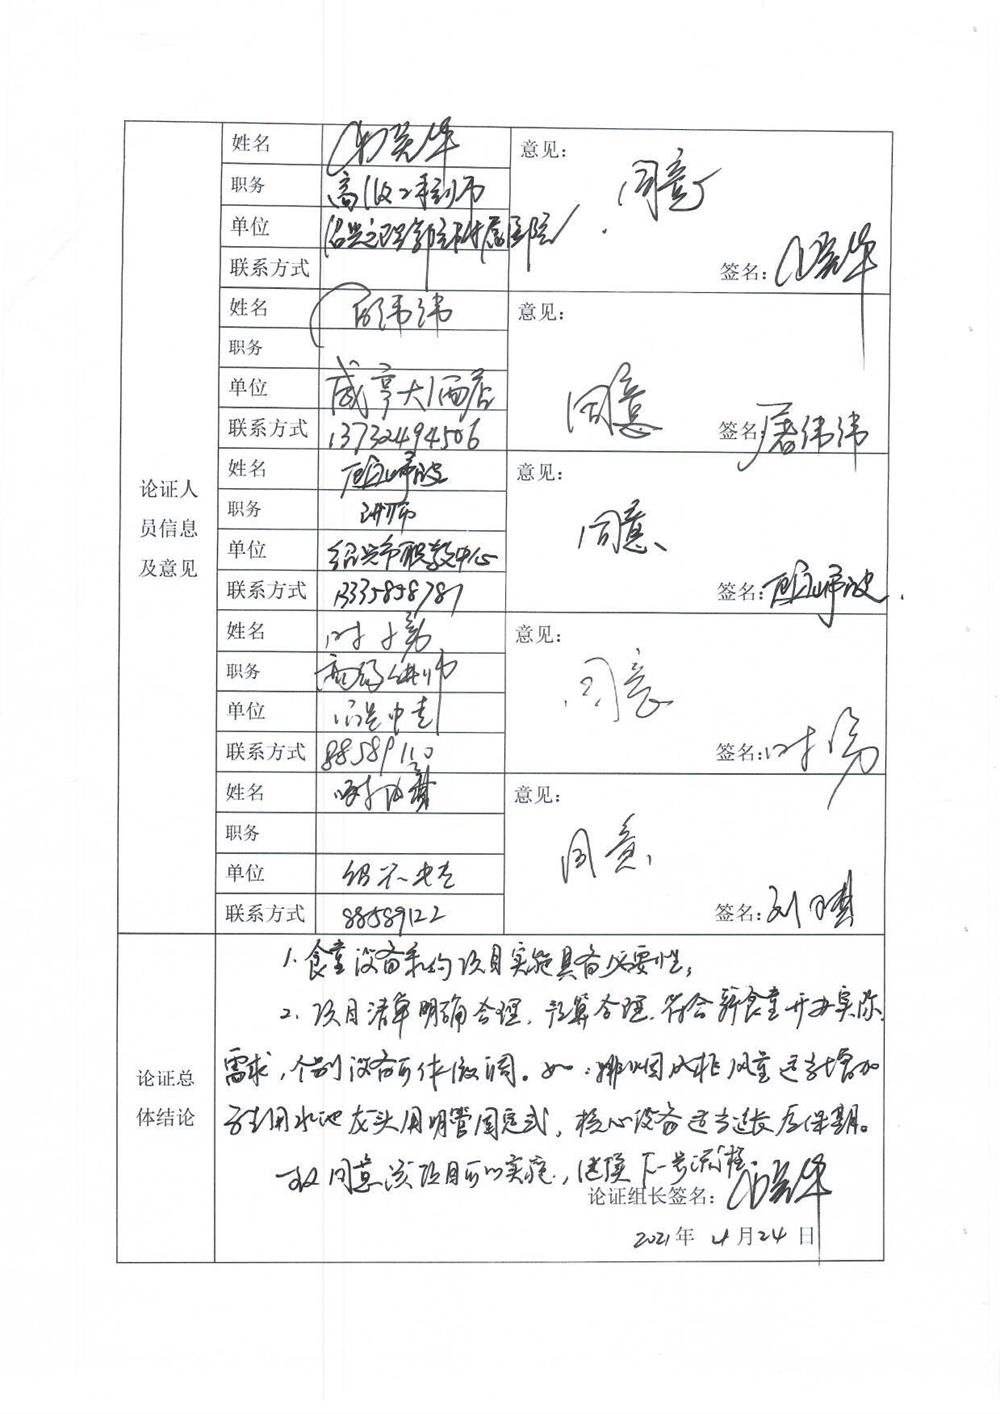 姓名
意见：
同意
职务 高级工程师
单位 绍兴文理学院附属医院
联系方式
签名：
姓名 屠纬纬
意见：
职务
单位 咸亨大酒店
同意
联系方式 13732494506
签名： 屠纬纬
论证人
员信息
及意见
姓名
意见：
职务 讲师
同意
单位 绍兴市职教中心
联系方式 13335858787
签名：
姓名 叶勇
意见：
职务 高级讲师
同意
单位 绍兴中专
联系方式 88589110
签名： 叶勇
姓名
意见：
职务
同意
单位 绍兴中专
联系方式 88589122
签名：
论证总
体结论
1. 食堂设备采购项目实施具备必要性；
2. 项目清单明确合理，预算合理，符合新食堂开办实际
需求，个别设备可作微调。如：排烟风机风量适当增加
龙头用明管固定式，核心设备适当延长质保期。
故同意该项目可以实施，继续下一步流程。
论证组长签名：
2021年 4月24日